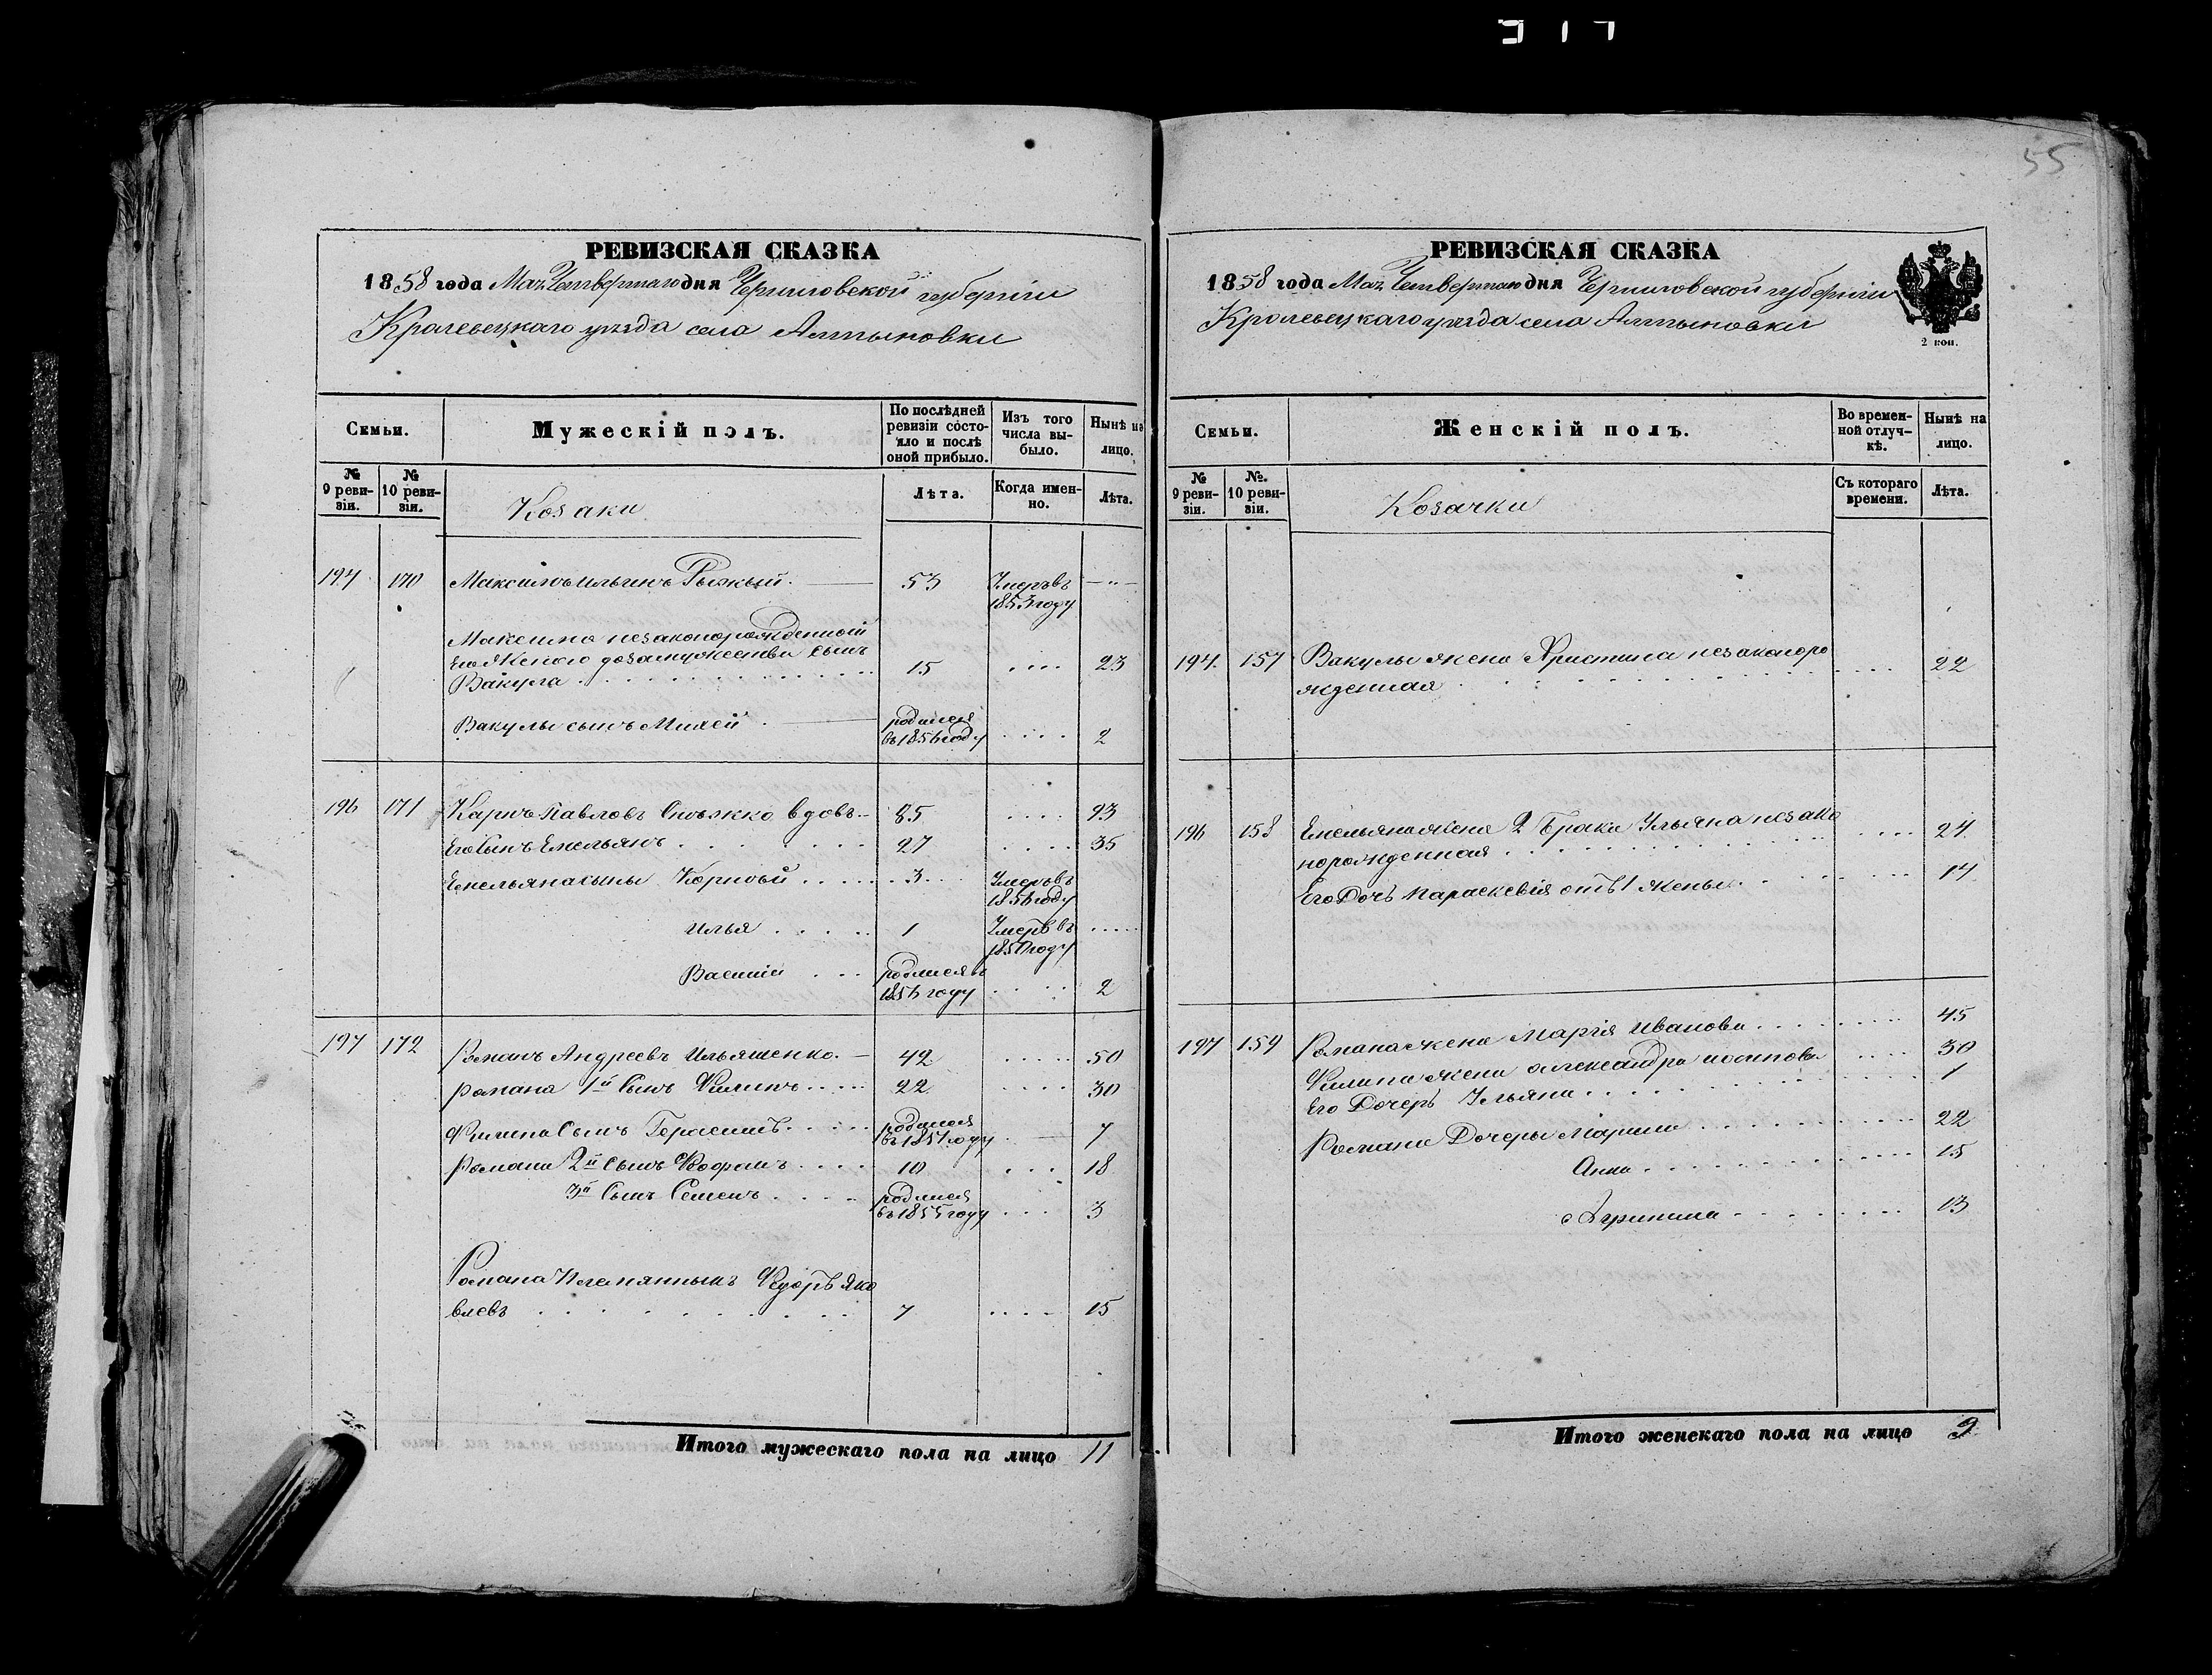 55
РЕВИЗСКАЯ СКАЗКА
1858 года Мая Четвертаго дня Черниговской губерніи
Кролевецкаго уезда села Алтыновки
Семьи.
Мужескій полъ.
По послѣдней ревизіи состояло и послѣ оной прибыло.
Изъ того числа выбыло.
Нынѣ на лицо.
№ 9 ревизіи.
№ 10 ревизіи.
Козаки
Лѣта.
Когда именно.
Лѣта.
194 170 Максимъ Ильинъ Рыжый. 53 Умеръ въ — „ —
1853 году
Максима незаконорожденной
его Женою до замужества сынъ
Вакула . . . . 15 . . . . 23
Вакулы сынъ Мивсей родился
въ 1856 году . . . . 2
196 171 Карпъ Павловъ Снѣжко вдовъ 85 . . . . 93
Его Сынъ Емельянъ . . . . 27 . . . . 35
Емельяна сыны Корней . . . . 3 Умеръ въ
1856 году
Илья . . . . 1 Умеръ въ . . . .
1850 году
Василій . . . родился въ
1856 году . . . . 2
197 172 Романъ Андреевъ Ильяшенко. 42 . . . . 50
Романа 1й Сынъ Филипъ . . . . 22 . . . . 30
Филипа Сынъ Герасимъ . . . . родился
въ 1851 году . . 7
Романа 2й Сынъ . . . . 10 . . . 18
3й Сынъ Семенъ . . . . родился
въ 1855 году . . . 3
Романа Племянникъ Федоръ Яко
влевъ . . . . 7 . . . . 15
Итого мужескаго пола на лицо 11
РЕВИЗСКАЯ СКАЗКА
1858 года Мая Четвертаго дня Черниговской губерніи
Кролевецкаго уезда села Алтыновки
2 коп.
Семьи.
Женскій полъ.
Во временной отлучкѣ.
Нынѣ на лицо.
№ 9 ревизіи.
№. 10 ревизіи.
Козачки
Съ котораго времени.
Лѣта.
194 157 Вакулы жена Христина незаконоро . . . . 22
жденная . . . .
196 158 Емельяна жена 2 Брака Ульяна незако . . . . 24
норожденная . . . .
Его Дочь Параскевія отъ 1 жены . . . . 14
197 159 Романа жена Марія Иванова . . . . 45
Филипа жена Александра Иосипова . . . . 30
Его Дочеръ Ульяна . . . . 1
Романа Дочеры Марина . . . . 22
Анна . . . . 15
Агрипина . . . . 13
Итого женскаго пола на лицо 9